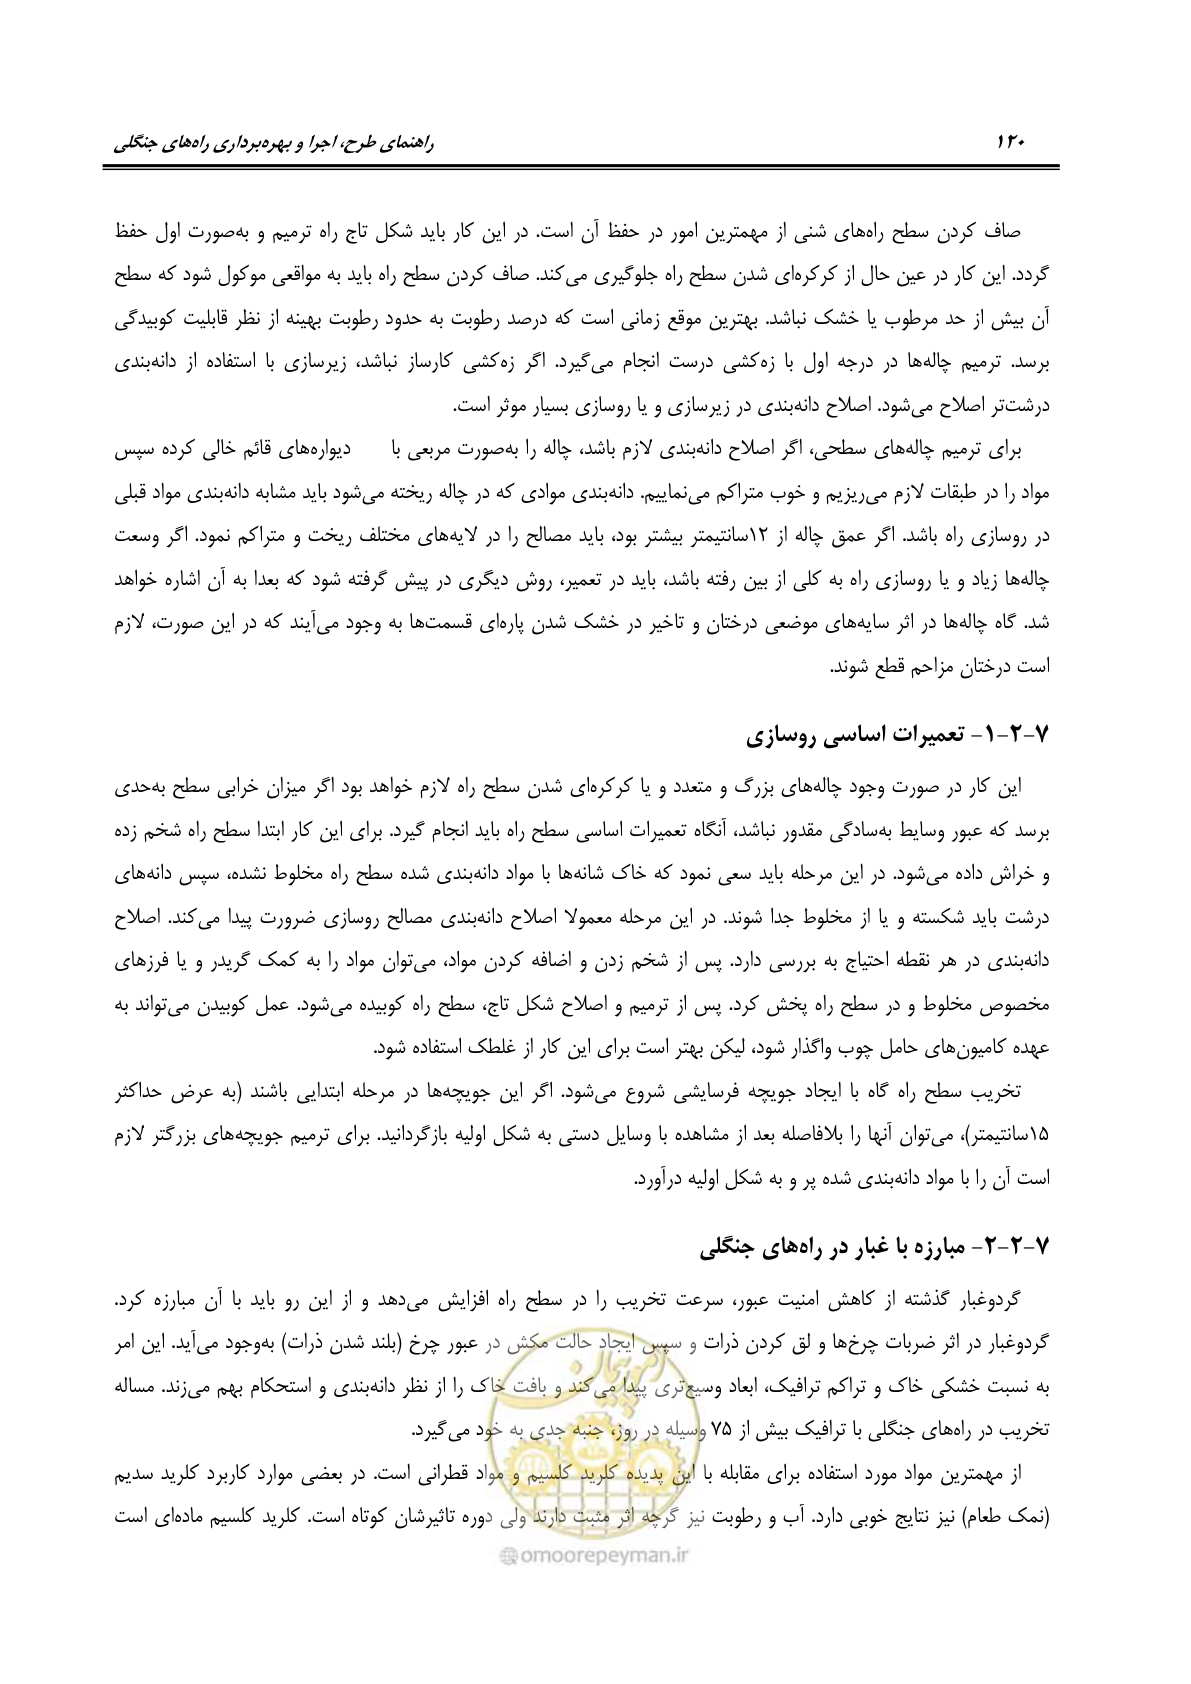 ۱۲۰
راهنمای طرح، اجرا و بهره‌برداری راه‌های جنگلی
صاف کردن سطح راه‌های شنی از مهمترین امور در حفظ آن است. در این کار باید شکل تاج راه ترمیم و به‌صورت اول حفظ
گردد. این کار در عین حال از کرکره‌ای شدن سطح راه جلوگیری می‌کند. صاف کردن سطح راه باید به مواقعی موکول شود که سطح
آن بیش از حد مرطوب یا خشک نباشد. بهترین موقع زمانی است که درصد رطوبت به حدود رطوبت بهینه از نظر قابلیت کوبیدگی
برسد. ترمیم چاله‌ها در درجه اول با زه‌کشی درست انجام می‌گیرد. اگر زه‌کشی کارساز نباشد، زیرسازی با استفاده از دانه‌بندی
درشت‌تر اصلاح می‌شود. اصلاح دانه‌بندی در زیرسازی و یا روسازی بسیار موثر است.
برای ترمیم چاله‌های سطحی، اگر اصلاح دانه‌بندی لازم باشد، چاله را به‌صورت مربعی با دیواره‌های قائم خالی کرده سپس
مواد را در طبقات لازم می‌ریزیم و خوب متراکم می‌نماییم. دانه‌بندی موادی که در چاله ریخته می‌شود باید مشابه دانه‌بندی مواد قبلی
در روسازی راه باشد. اگر عمق چاله از ۱۲سانتیمتر بیشتر بود، باید مصالح را در لایه‌های مختلف ریخت و متراکم نمود. اگر وسعت
چاله‌ها زیاد و یا روسازی راه به کلی از بین رفته باشد، باید در تعمیر، روش دیگری در پیش گرفته شود که بعدا به آن اشاره خواهد
شد. گاه چاله‌ها در اثر سایه‌های موضعی درختان و تاخیر در خشک شدن پاره‌ای قسمت‌ها به وجود می‌آیند که در این صورت، لازم
است درختان مزاحم قطع شوند.
۷-۲-۱- تعمیرات اساسی روسازی
این کار در صورت وجود چاله‌های بزرگ و متعدد و یا کرکره‌ای شدن سطح راه لازم خواهد بود اگر میزان خرابی سطح به‌حدی
برسد که عبور وسایط به‌سادگی مقدور نباشد، آنگاه تعمیرات اساسی سطح راه باید انجام گیرد. برای این کار ابتدا سطح راه شخم زده
و خراش داده می‌شود. در این مرحله باید سعی نمود که خاک شانه‌ها با مواد دانه‌بندی شده سطح راه مخلوط نشده، سپس دانه‌های
درشت باید شکسته و یا از مخلوط جدا شوند. در این مرحله معمولا اصلاح دانه‌بندی مصالح روسازی ضرورت پیدا می‌کند. اصلاح
دانه‌بندی در هر نقطه احتیاج به بررسی دارد. پس از شخم زدن و اضافه کردن مواد، می‌توان مواد را به کمک گریدر و یا فرزهای
مخصوص مخلوط و در سطح راه پخش کرد. پس از ترمیم و اصلاح شکل تاج، سطح راه کوبیده می‌شود. عمل کوبیدن می‌تواند به
عهده کامیون‌های حامل چوب واگذار شود، لیکن بهتر است برای این کار از غلطک استفاده شود.
تخریب سطح راه گاه با ایجاد جویچه فرسایشی شروع می‌شود. اگر این جویچه‌ها در مرحله ابتدایی باشند (به عرض حداکثر
۱۵سانتیمتر)، می‌توان آنها را بلافاصله بعد از مشاهده با وسایل دستی به شکل اولیه بازگردانید. برای ترمیم جویچه‌های بزرگتر لازم
است آن را با مواد دانه‌بندی شده پر و به شکل اولیه درآورد.
۷-۲-۲- مبارزه با غبار در راه‌های جنگلی
گردوغبار گذشته از کاهش امنیت عبور، سرعت تخریب را در سطح راه افزایش می‌دهد و از این رو باید با آن مبارزه کرد.
گردوغبار در اثر ضربات چرخ‌ها و لق کردن ذرات و سپس ایجاد حالت مکش در عبور چرخ (بلند شدن ذرات) به‌وجود می‌آید. این امر
به نسبت خشکی خاک و تراکم ترافیک، ابعاد وسیع‌تری پیدا می‌کند و بافت خاک را از نظر دانه‌بندی و استحکام بهم می‌زند. مساله
تخریب در راه‌های جنگلی با ترافیک بیش از ۷۵ وسیله در روز، جنبه جدی به خود می‌گیرد.
از مهمترین مواد مورد استفاده برای مقابله با این پدیده کلرید کلسیم و مواد قطرانی است. در بعضی موارد کاربرد کلرید سدیم
(نمک طعام) نیز نتایج خوبی دارد. آب و رطوبت نیز گرچه اثر مثبت دارند ولی دوره تاثیرشان کوتاه است. کلرید کلسیم ماده‌ای است
امور پیمان
@omoorepeyman.ir